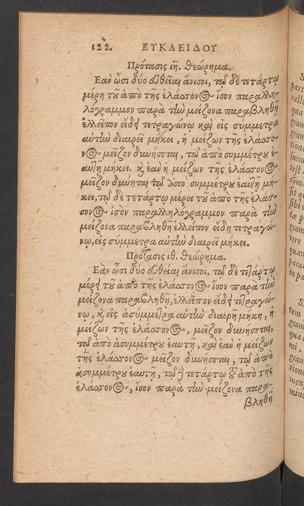 122. ΕΥΚΛΕΙΔΟΥ
Πρότασις ιη. Θεώρημα.
Εὰν ὦσι δύο εὐθεῖαι ἄνισοι, τῷ δὲ τετάρτῳ
μέρει τοῦ ἀπὸ τῆς ἐλάσσονος ἴσον παραλλη-
λόγραμμον παρὰ τὴν μείζονα παραβληθῇ
ἐλλεῖπον εἴδει τετραγώνῳ καὶ εἰς σύμμετρα
αὐτὴν διαιρεῖ μήκει, ἡ μείζων τῆς ἐλάσσο-
νος μεῖζον δυνήσεται, τῷ ἀπὸ συμμέτρου ἑ-
αυτῇ μήκει. καὶ ἐὰν ἡ μείζων τῆς ἐλάσσονος
μεῖζον δύνηται τῷ ἀπὸ συμμέτρου ἑαυτῇ μή-
κει, τῷ δὲ τετάρτῳ μέρει τοῦ ἀπὸ τῆς ἐλάσ-
σονος ἴσον παραλληλόγραμμον παρὰ τὴν
μείζονα παραβληθῇ ἐλλεῖπον εἴδει τετραγώ-
νῳ, εἰς σύμμετρα αὐτὴν διαιρεῖ μήκει.
Πρότασις ιθ. Θεώρημα.
Εὰν ὦσι δύο εὐθεῖαι ἄνισοι, τῷ δὲ τετάρτῳ
μέρει τοῦ ἀπὸ τῆς ἐλάσσονος ἴσον παρὰ τὴν
μείζονα παραβληθῇ, ἐλλεῖπον εἴδει τετραγώ-
νῳ, καὶ εἰς ἀσύμμετρα αὐτὴν διαιρῇ μήκη, ἡ
μείζων τῆς ἐλάσσονος, μεῖζον δυνήσεται,
τῷ ἀπὸ ἀσυμμέτρου ἑαυτῇ, καὶ ἐὰν ἡ μείζων
τῆς ἐλάσσονος μεῖζον δυνήσεται, τῷ ἀπὸ
ἀσυμμέτρου ἑαυτῇ, τῷ τετάρτῳ τοῦ ἀπὸ τῆς
ἐλάσσονος, ἴσον παρὰ τὴν μείζονα παρα-
βληθῇ